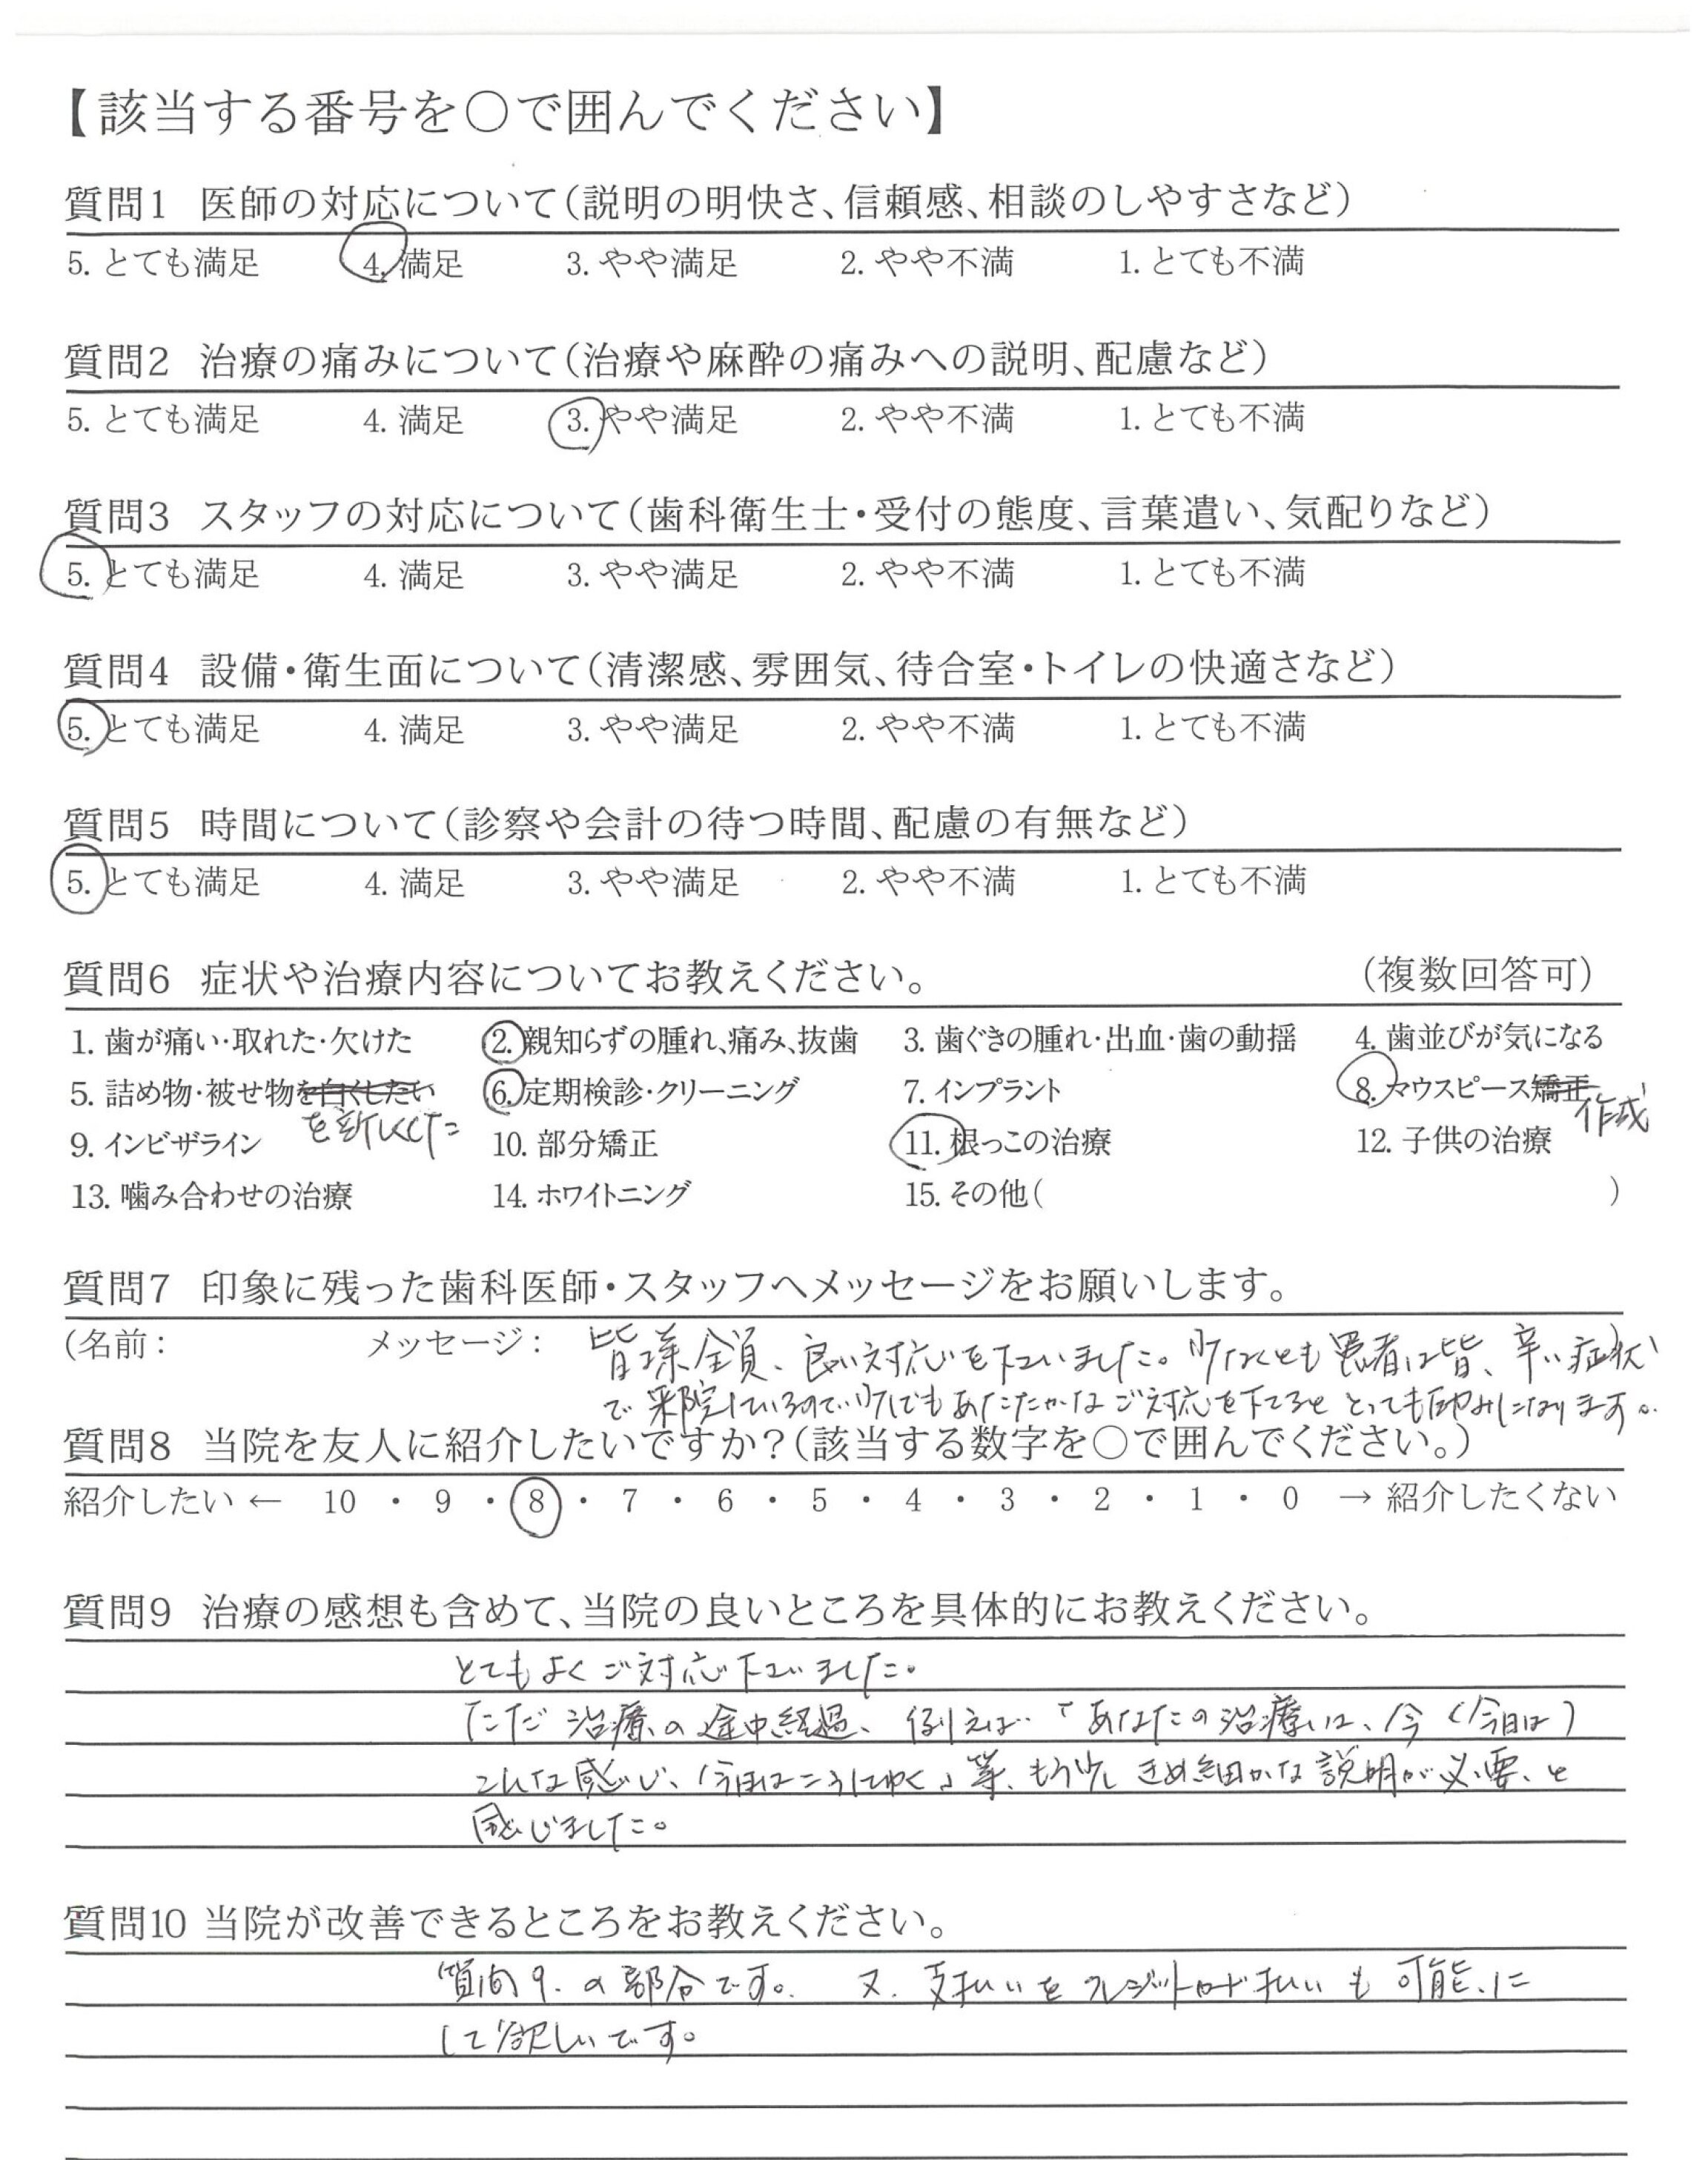 【該当する番号を○で囲んでください】
質問1 医師の対応について(説明の明快さ、信頼感、相談のしやすさなど)
5. とても満足 4. 満足 3. やや満足 2. やや不満 1. とても不満
質問2 治療の痛みについて(治療や麻酔の痛みへの説明、配慮など)
5. とても満足 4. 満足 3. やや満足 2. やや不満 1. とても不満
質問3 スタッフの対応について(歯科衛生士・受付の態度、言葉遣い、気配りなど)
5. とても満足 4. 満足 3. やや満足 2. やや不満 1. とても不満
質問4 設備・衛生面について(清潔感、雰囲気、待合室・トイレの快適さなど)
5. とても満足 4. 満足 3. やや満足 2. やや不満 1. とても不満
質問5 時間について(診察や会計の待つ時間、配慮の有無など)
5. とても満足 4. 満足 3. やや満足 2. やや不満 1. とても不満
質問6 症状や治療内容についてお教えください。 (複数回答可)
1. 歯が痛い・取れた・欠けた 2. 親知らずの腫れ、痛み、抜歯 3. 歯ぐきの腫れ・出血・歯の動揺 4. 歯並びが気になる
5. 詰め物・被せ物を白くしたい 6. 定期検診・クリーニング 7. インプラント 8. マウスピース矯正
を新しくした 作成
9. インビザライン 10. 部分矯正 11. 根っこの治療 12. 子供の治療
13. 噛み合わせの治療 14. ホワイトニング 15. その他( )
質問7 印象に残った歯科医師・スタッフへメッセージをお願いします。
(名前: メッセージ: 皆様全員、良い対応を下さいました。少なくとも患者は皆、辛い症状)
で来院しているので少しでもあたたかなご対応を下さると とても励みになります。
質問8 当院を友人に紹介したいですか?(該当する数字を○で囲んでください。)
紹介したい ← 10 ・ 9 ・ 8 ・ 7 ・ 6 ・ 5 ・ 4 ・ 3 ・ 2 ・ 1 ・ 0 → 紹介したくない
質問9 治療の感想も含めて、当院の良いところを具体的にお教えください。
とてもよくご対応下さいました。
ただ 治療の途中経過、例えば「あなたの治療は、今(今日は)
こんな感じ、今日はこうしてゆく」等、もう少し きめ細かな説明が必要、と
感じました。
質問10 当院が改善できるところをお教えください。
質問9.の部分です。 又、支払いをクレジットカード払いも可能に
して欲しいです。